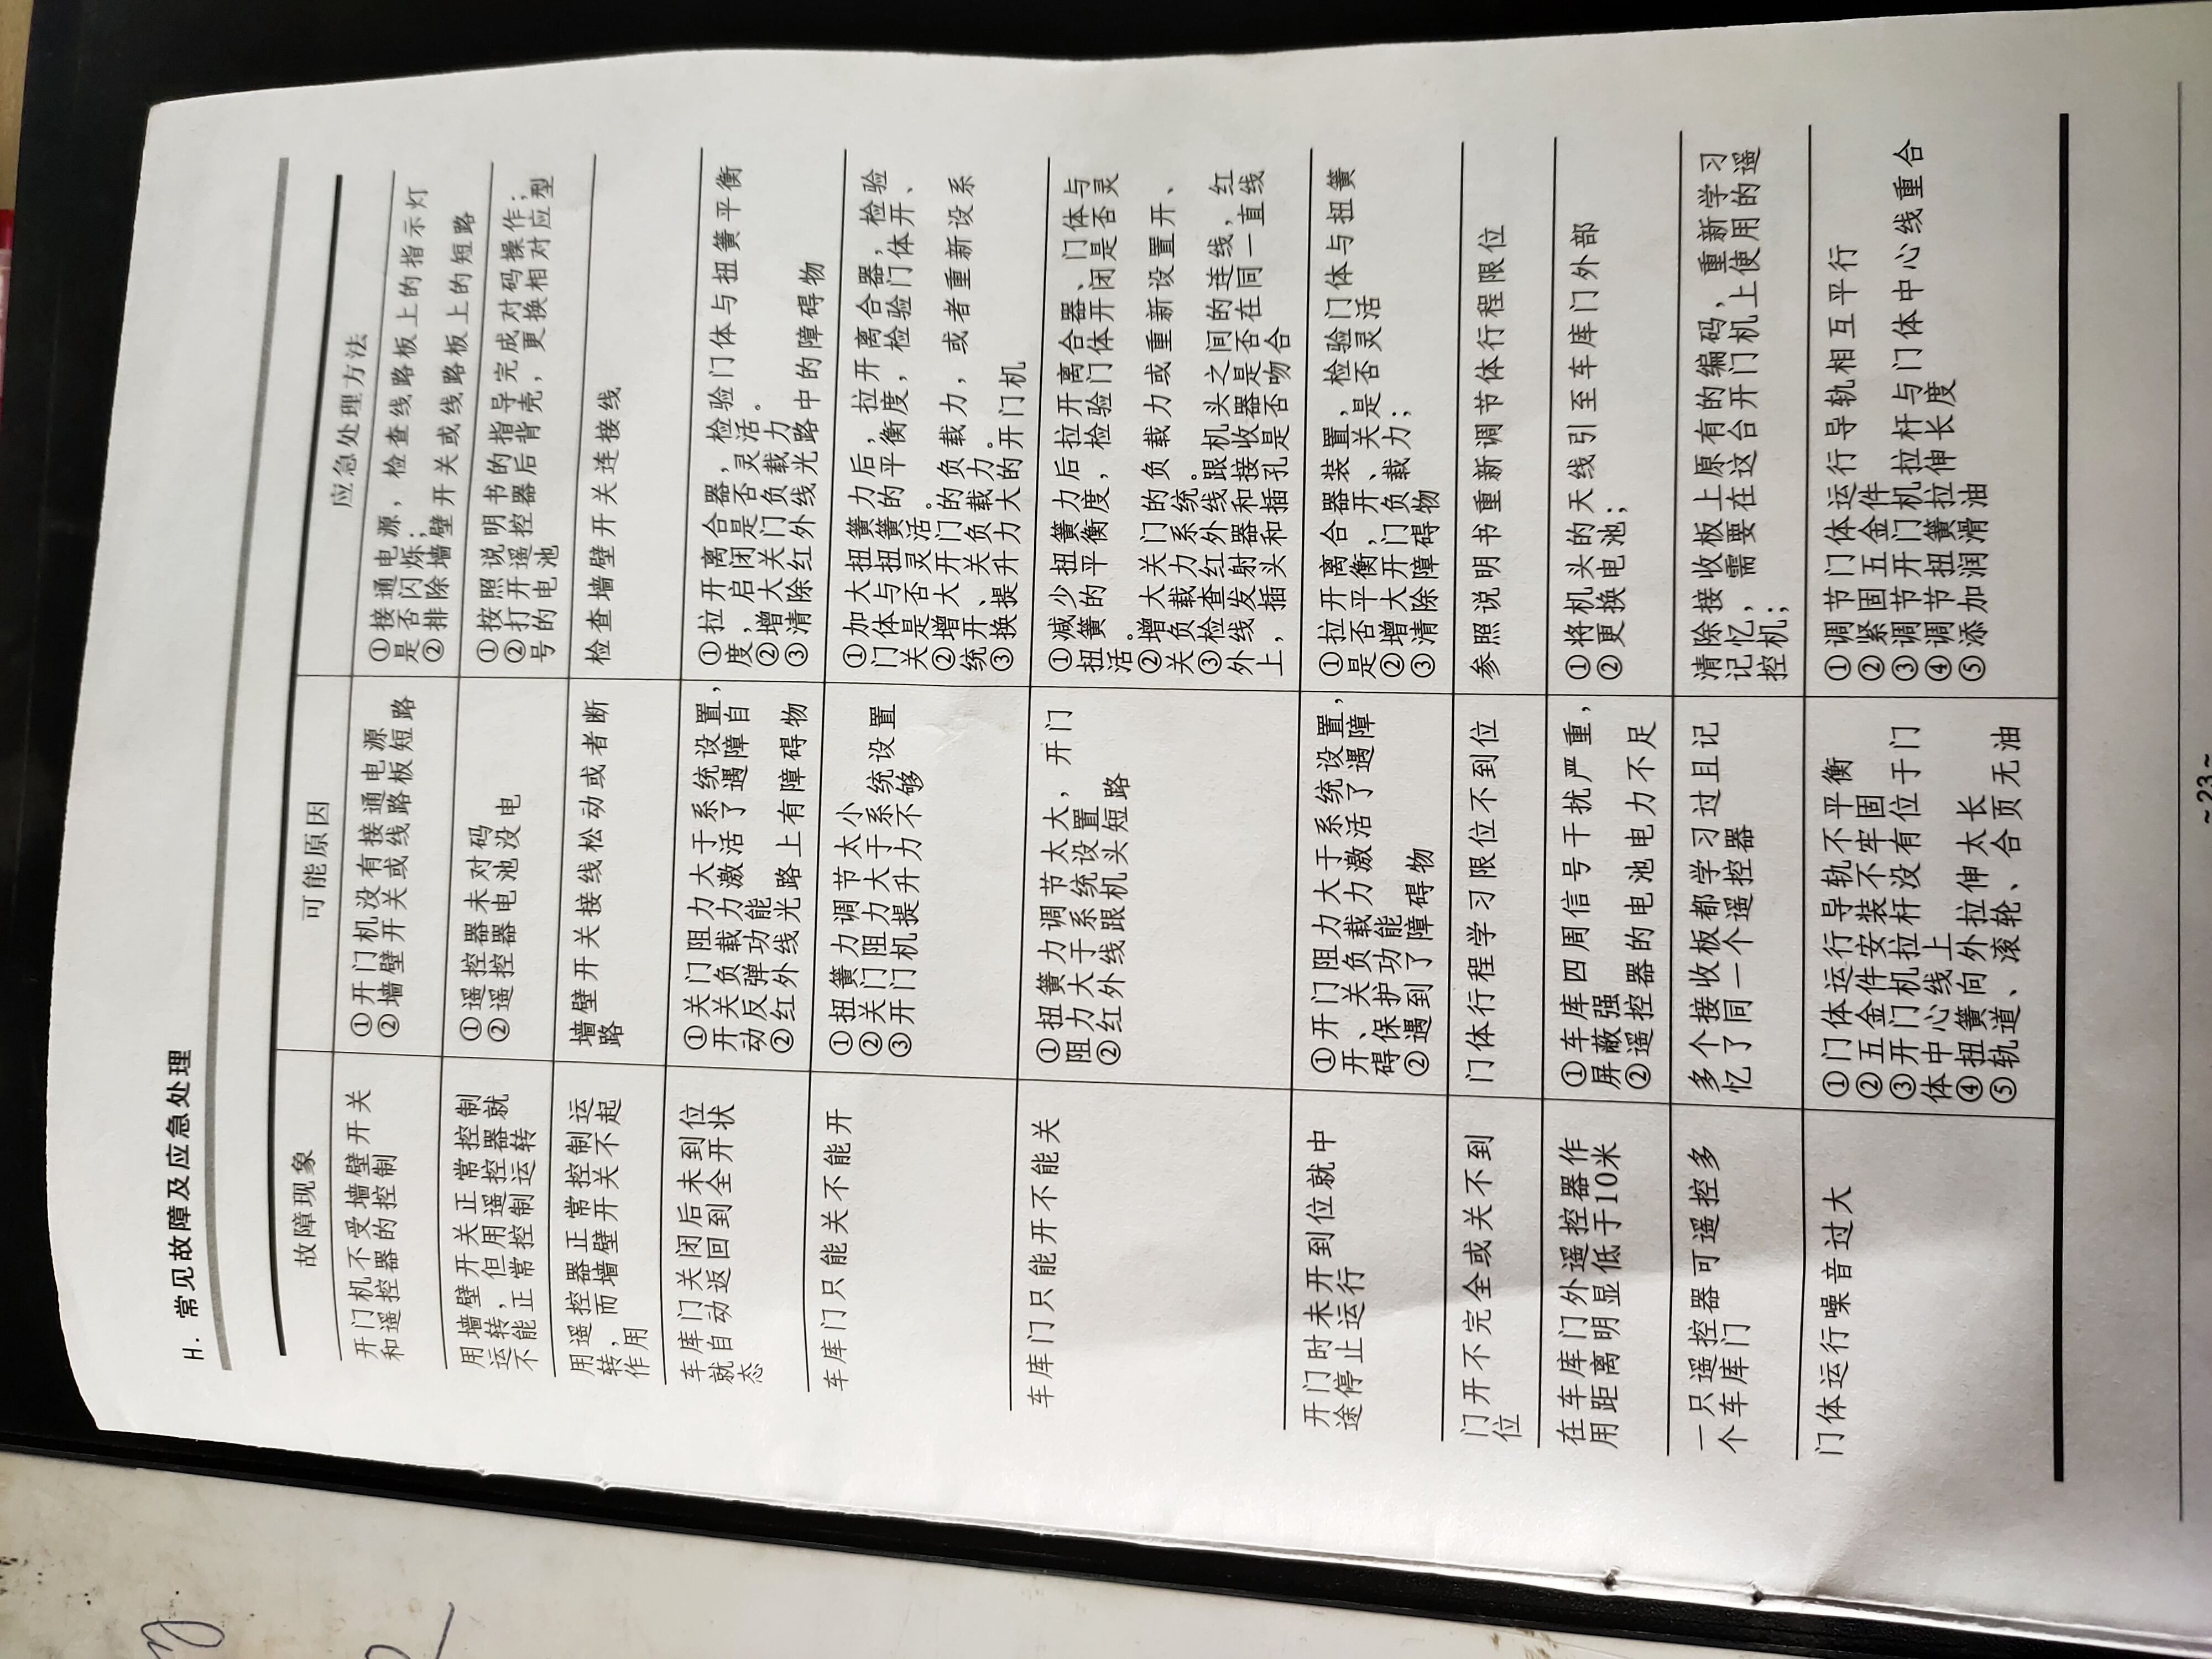 H. 常见故障及应急处理
故障现象
可能原因
应急处理方法
开门机不受墙壁开关
和遥控器的控制
①开门机没有接通电源
②墙壁开关或线路板短路
①接通电源，检查线路板上的指示灯
是否闪烁；
②排除墙壁开关或线路板上的短路
用墙壁开关正常控制
运转，但用遥控器就
不能正常控制运转
①遥控器未对码
②遥控器电池没电
①按照说明书的指导完成对码操作；
②打开遥控器后背壳，更换相对应型
号的电池
用遥控器正常控制运
转，而墙壁开关不起
作用
墙壁开关接线松动或者断
路
检查墙壁开关连接线
车库门关闭后未到位
就自动返回到全开状
态
①关门阻力大于系统设置，
开关负载力激活了遇障自
动反弹功能
②红外线光路上有障碍物
①拉开离合器，检验门体与扭簧平衡
度，启闭是否灵活。
②增大关门负载力
③清除红外线光路中的障碍物
车库门只能关不能开
①扭簧力调节太小
②关门阻力大于系统设置
③开门机提升力不够
①加大扭簧力后，拉开离合器，检验
门体与扭簧的平衡度，检验门体开、
关是否灵活。
②增大开门的负载力，或者重新设系
统开、关负载力。
③换提升力大的开门机
车库门只能开不能关
①扭簧力调节太大，开门
阻力大于系统设置
②红外线跟机头短路
①减少扭簧力后拉开离合器、门体与
扭簧的平衡度，检验门体开闭是否灵
活。
②增大关门的负载力或重新设置开、
关负载力系统。
③检查红外线跟机头之间的连线，红
外线发射器和接收器是否在同一直线
上，插头和插孔是否吻合
开门时未开到位就中
途停止运行
①开门阻力大于系统设置，
开、关负载力激活了遇障
碍保护功能
②遇到了障碍物
①拉开离合器装置，检验门体与扭簧
是否平衡，开、关是否灵活
②增大开门负载力；
③清除障碍物
门开不完全或关不到
位
门体行程学习限位不到位
参照说明书重新调节体行程限位
在车库门外遥控器作
用距离明显低于10米
①车库四周信号干扰严重，
屏蔽强
②遥控器的电池电力不足
①将机头的天线引至车库门外部
②更换电池；
一只遥控器可遥控多
个车库门
多个接收板都学习过且记
忆了同一个遥控器
清除接收板上原有的编码，重新学习
记忆，需要在这台开门机上使用的遥
控机；
门体运行噪音过大
①门体运行导轨不平衡
②五金件安装不牢固
③开门机拉杆没有位于门
体中心线上
④扭簧向外拉伸太长
⑤轨道、滚轮、合页无油
①调节门体运行导轨相互平行
②紧固五金件
③调节开门机拉杆与门体中心线重合
④调节扭簧拉伸长度
⑤添加润滑油
~23~